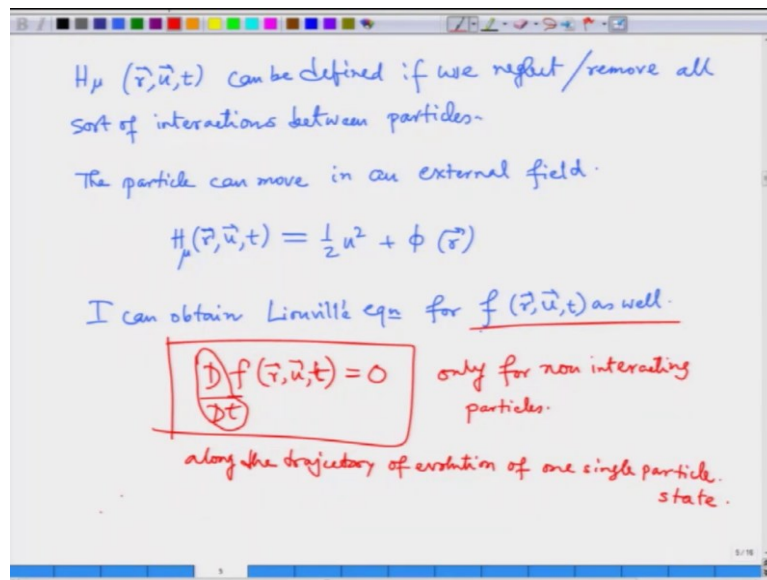 B I
H_μ (r⃗,u⃗,t) can be defined if we neglect/remove all
sort of interactions between particles.
The particle can move in an external field.
H_μ(r⃗,u⃗,t) = 1/2 u² + ϕ (r⃗)
I can obtain Liouville eqn for f (r⃗,u⃗,t) as well.
D/Dt f (r⃗,u⃗,t) = 0 only for non interacting
particles.
along the trajectory of evolution of one single particle
state.
5/16
5